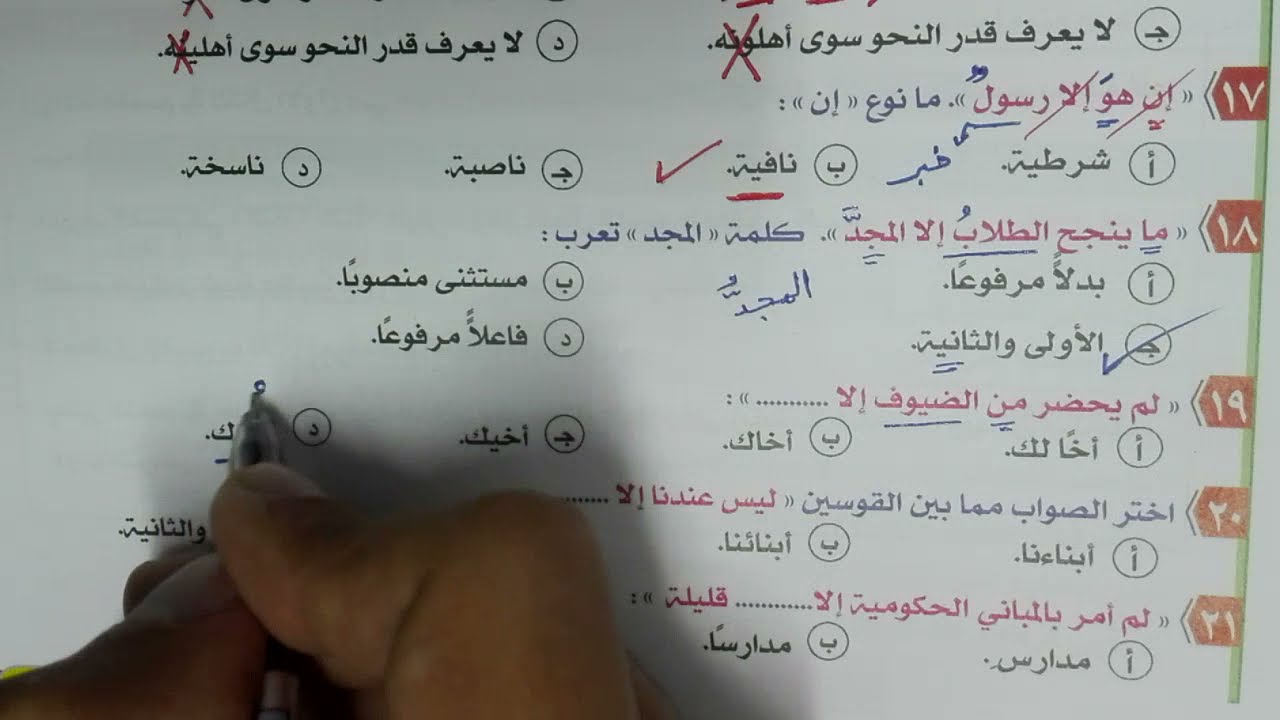 جـ لا يعرف قدر النحو سوى أهلونه. د لا يعرف قدر النحو سوى أهلينه.
١٧ « إن هوَ إلا رسولٌ ». ما نوع « إن » :
أ شرطية. خبر ب نافية. جـ ناصبة. د ناسخة.
١٨ « ما ينجح الطلابُ إلا المجِدَّ ». كلمة « المجد » تعرب :
أ بدلاً مرفوعًا. ب مستثنى منصوبًا.
المجدُّ
جـ الأولى والثانية. د فاعلاً مرفوعًا.
١٩ « لم يحضر من الضيوف إلا ........... » :
أ أخًا لك. ب أخاك. جـ أخيك. د
٢٠ اختر الصواب مما بين القوسين « ليس عندنا إلا ........
أ أبناءنا. ب أبنائنا. والثانية.
٢١ « لم أمر بالمباني الحكومية إلا............ قليلة » :
أ مدارس. ب مدارسًا.